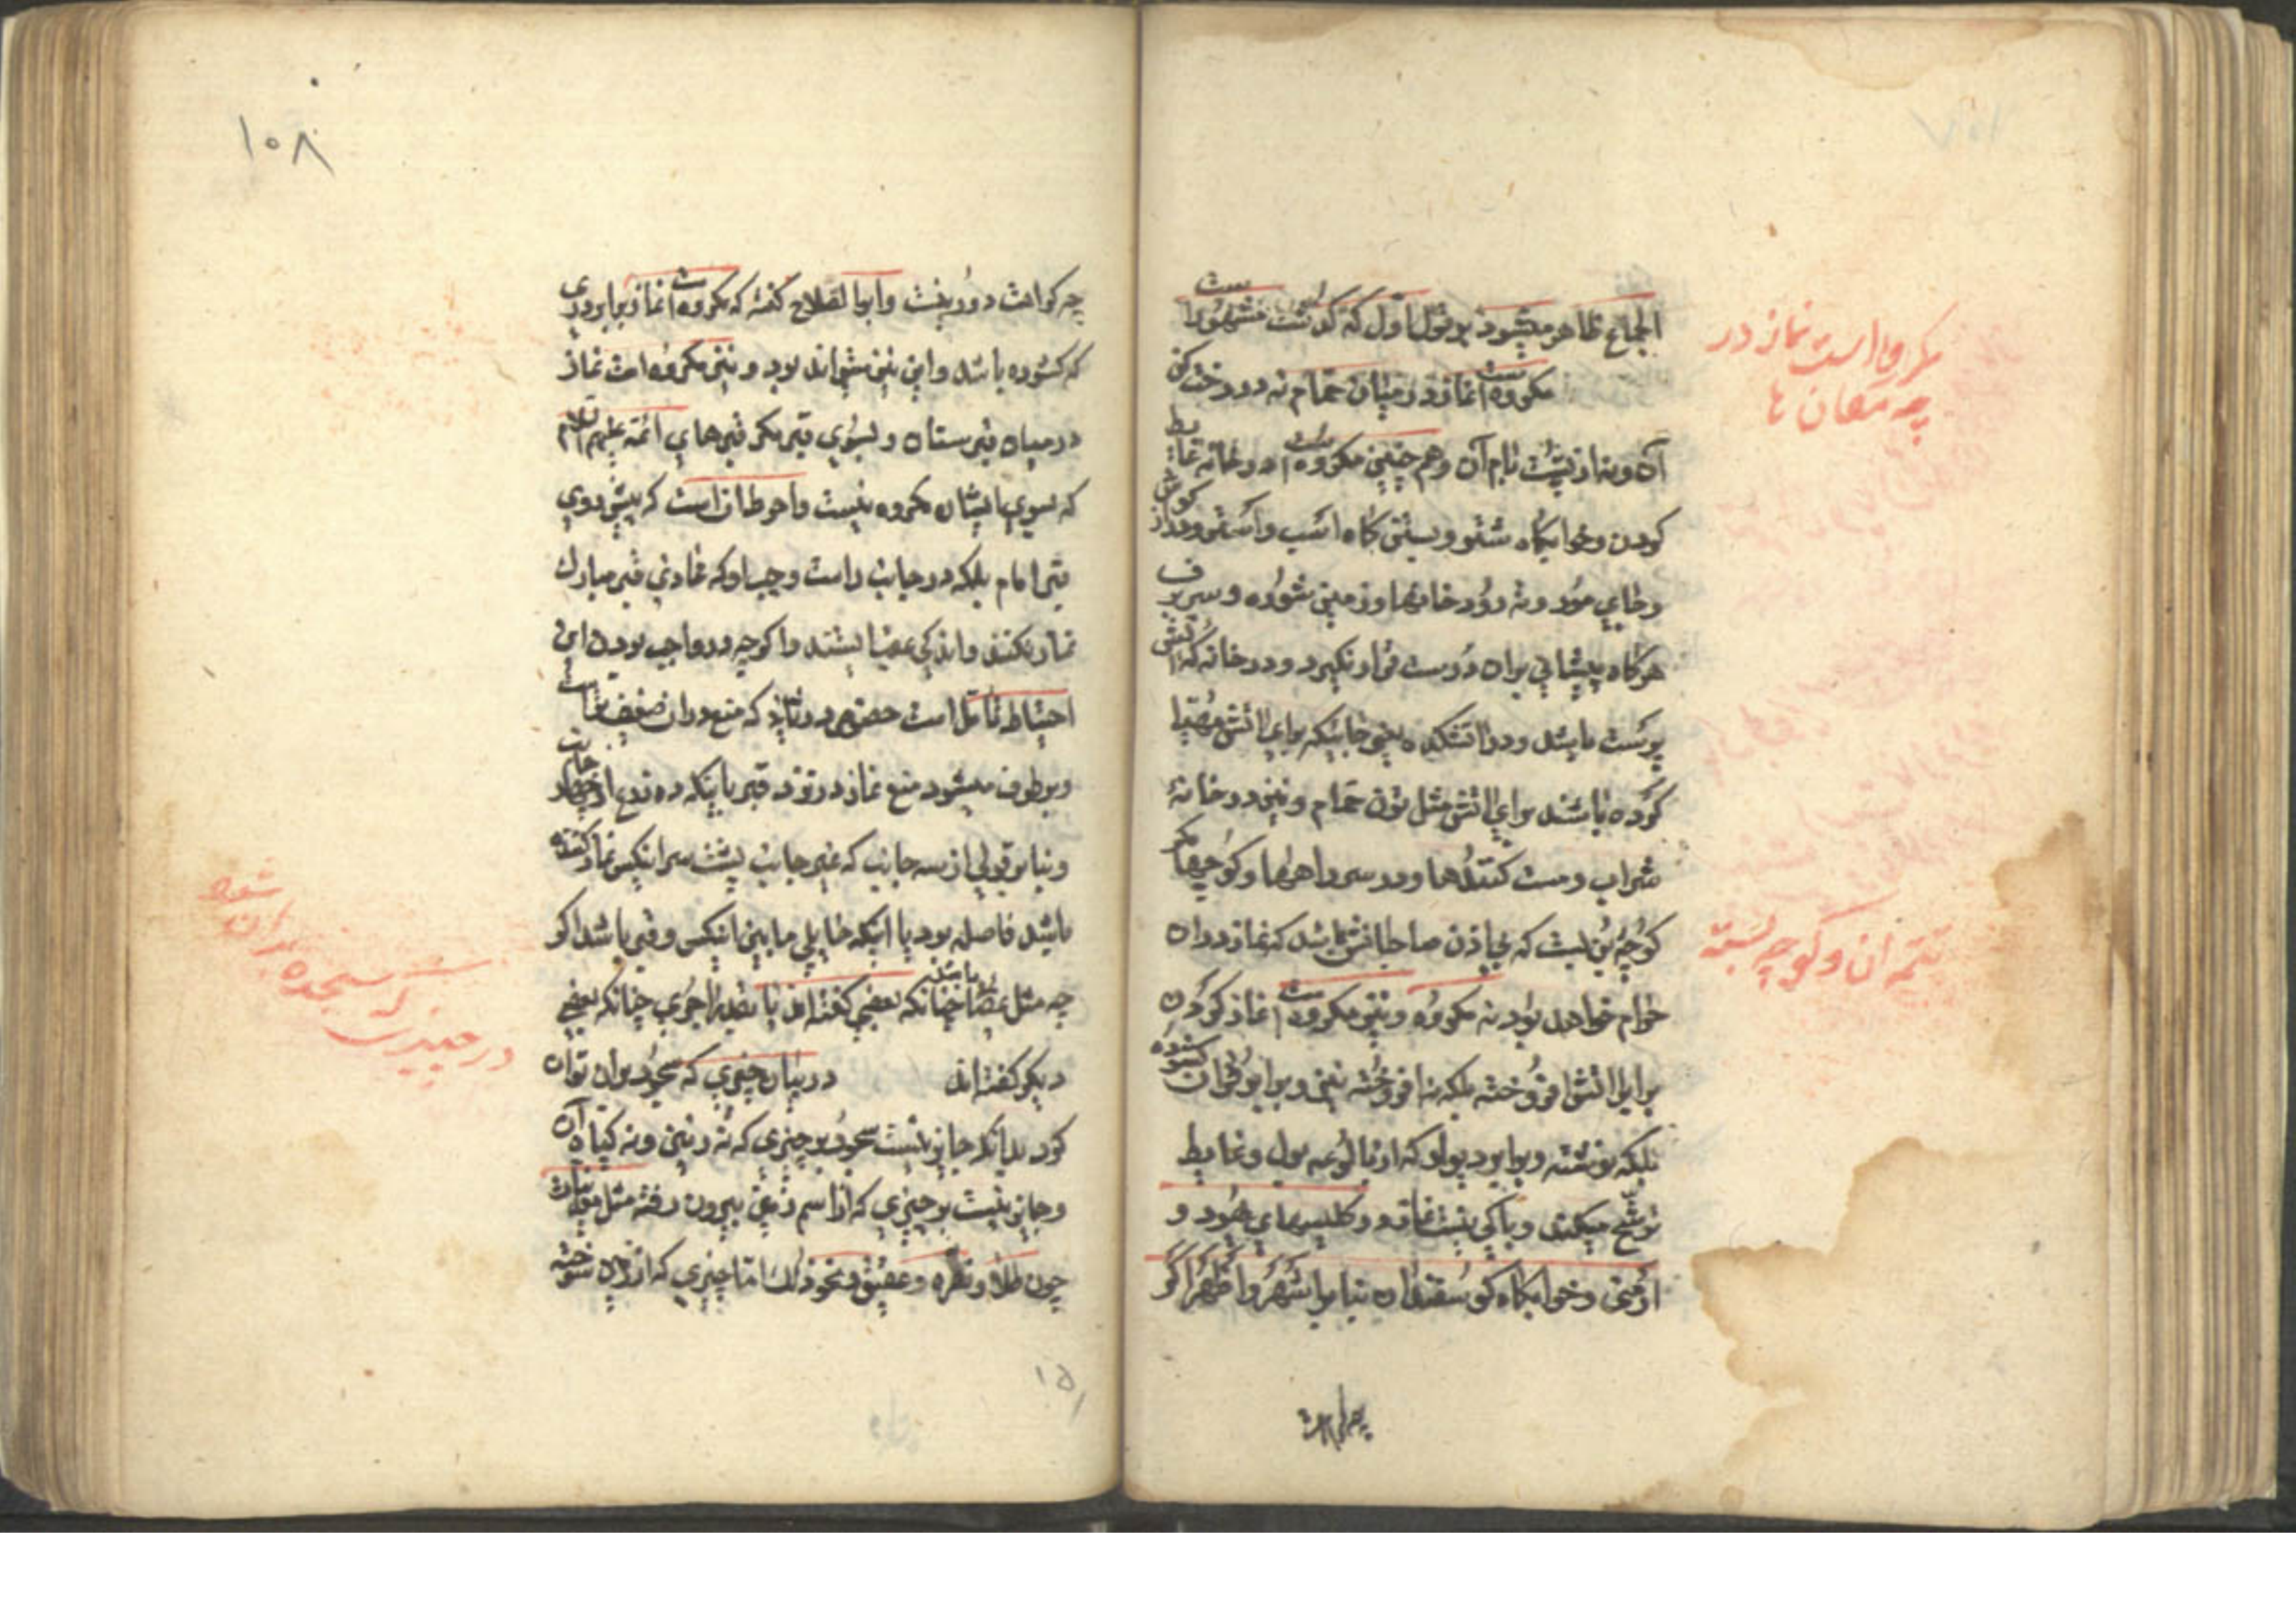 مکروه است نماز در
چه مکان ها
اجماع ظاهر میشود بر قول اول که گذشت مشهور است
مکروه است نماز در میان حمام نه در رخت کن
آن و نه از پشت بام آن و هم چنین مکروه است در خانه غایط
کردن و خوابگاه شتر و بستن گاه اسب و استر و دراز گوش
و جای مورد و نه رودخانها و زمین شوره و سر برف
هرگاه پیشانی بر آن درست قرار نگیرد و در خانه که آتش
پرست باشد و در آتشکده یعنی جاییکه برای آتش مهیا
کرده باشند برای آتش مثل تون حمام و نیز در خانهٔ
شراب و مست کنندها و در سر راهها و کوچها مگر
کوچهٔ بن بست که بی اذن صاحبانش باشد که نماز در آن
حرام خواهد بود نه مکروه و نیز مکروه است نماز کردن
برابر آتش افروخته بلکه نه افروخته نیز و برابر قرآن گشوده
بلکه نوشته و برابر دیوار که از بالوعه بول و غایط
ترشح میکند و باکی نیست نماز در کلیسیای یهود و
ارمنی و خوابگاه گوسفندان بنا بر اشهر و اظهر اگر
تتمه آن و کوچه بسته
چه کراهت
۱۰۸
چه کراهت دور نیست و ابوالصلاح گفته که مکروه است نماز برابر دری
که گشوده باشد و این نیز میتواند بود و نیز مکروه است نماز
در میان قبرستان و بسوی قبر مگر قبرهای ائمه علیهم السلام
که بسوی ایشان مکروه نیست و احوط آن است که پیش روی
قبر امام بلکه در جانب راست و چپ او که محاذی قبر مبارک
نماز نکنند و اندکی عقب ایستند و اگرچه در واجب بودن این
احتیاط تأمل است خصوص در که منع در آن ضعیف است
و برطرف میشود منع نماز در نزد قبر باینکه ده ذرع از چهار جانب
و بنا بر قولی از سه جانب که غیر جانب پشت سر اینکس نماز کننده
باشد فاصله بود یا اینکه حایلی مابین اینکس و قبر باشد اگر
چه مثل عصا باشد چنانکه بعضی گفته اند یا بقدر اجری چنانکه بعضی
دیگر گفته اند در بیان چیزی که سجود بر آن توان
کرد بدانکه جایز نیست سجود بر چیزی که نه زمین و نه گیاه آن
و جایز نیست بر چیزی که از اسم زمین بیرون رفته مثل معدنیات
چون طلا و نقره و عقیق و نحو ذلک اما چیزی که از زمین سوخته
در چیزیست
که سجده
بر آن شود
۱۵